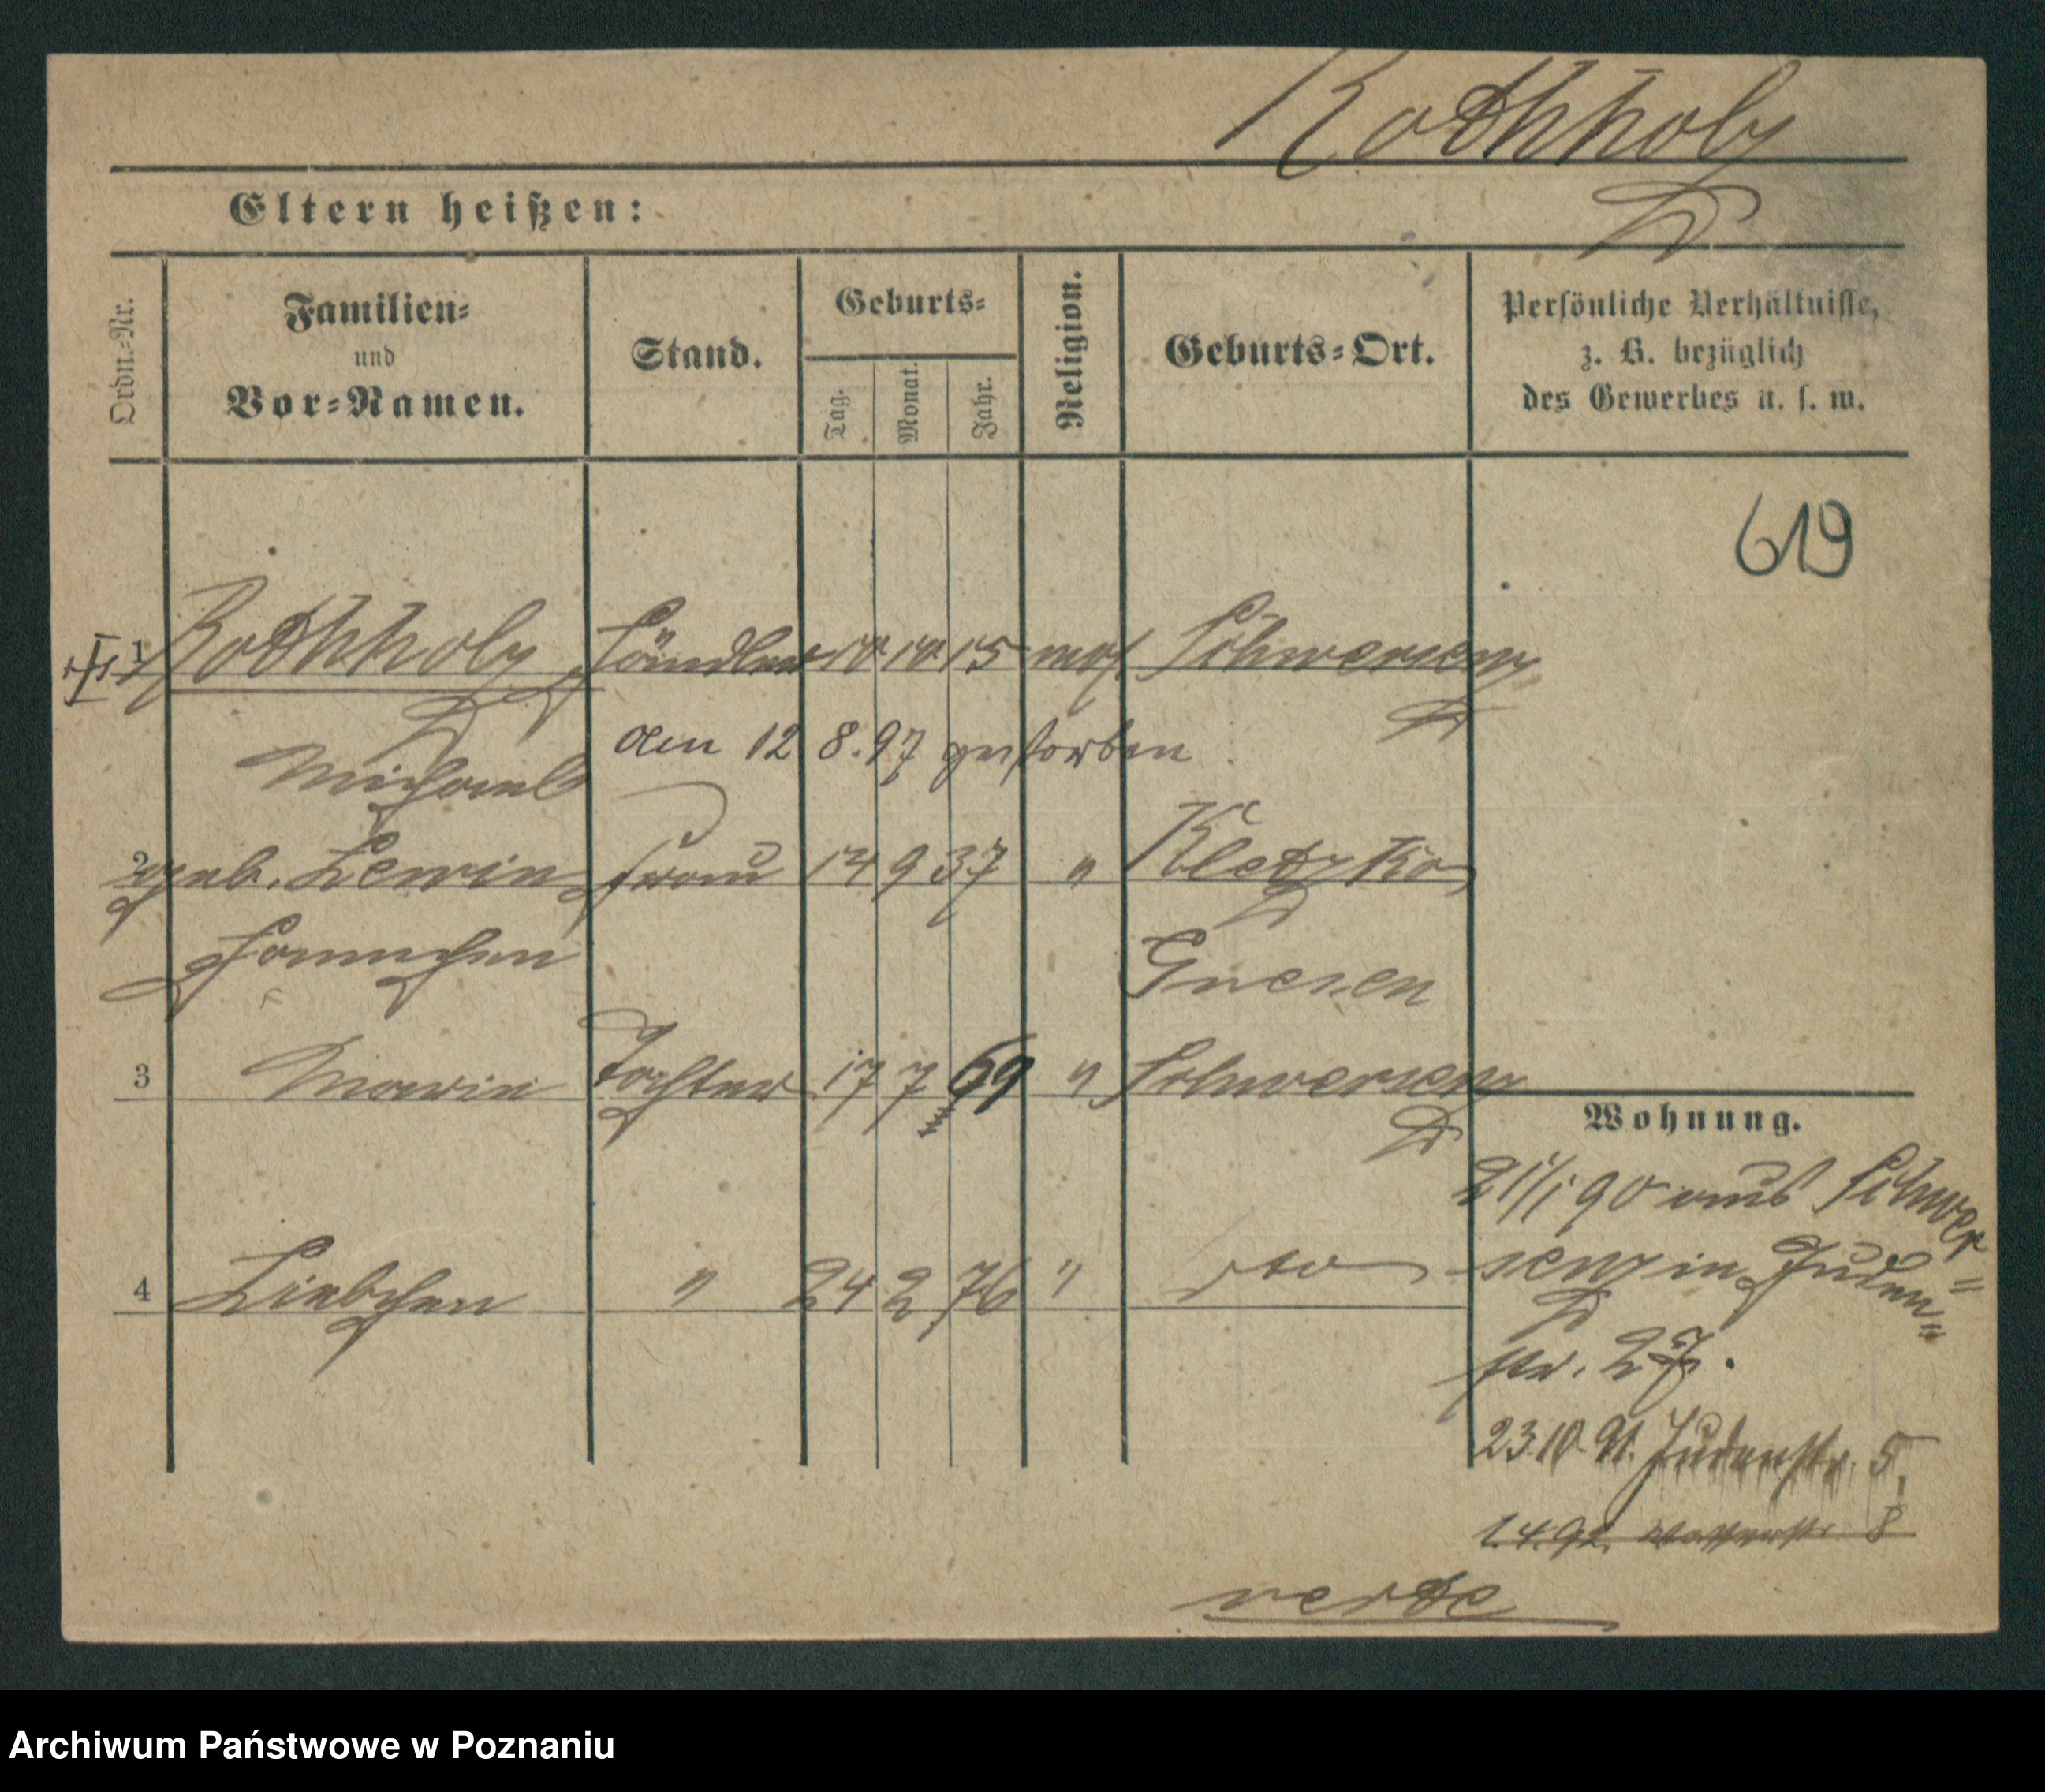 Rothholz
Eltern heißen:
Ordn.-Nr.
Familien-
und
Vor-Namen.
Stand.
Geburts-
Tag.
Monat.
Jahr.
Religion.
Geburts-Ort.
Persönliche Verhältnisse,
z. B. bezüglich
des Gewerbes u. s. w.
619
1 Rothholz Händler 10 10 15 mos. Schwersenz
Michael
den 12. 8. 97 gestorben
2 geb. Lewin Frau 14 9 37 " Kletzko
Hannchen Gnesen
3 Marie Tochter 17 7 69 " Schwersenz
4 Liebchen " 24 2 76 " dto
Wohnung.
21/1 90 aus Schwer=
senz in Juden=
str. 27.
23.10.91. Judenstr. 5.
1.4.92. Wasserstr. 8
verte
Archiwum Państwowe w Poznaniu